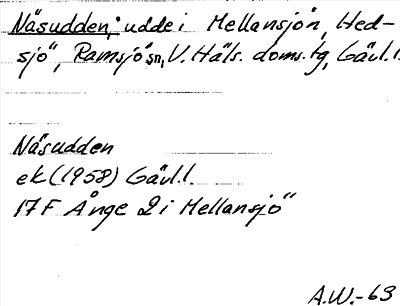 Näsudden, udde i Mellansjön, Hed-
sjö, Ramsjö sn, V. Häls. doms. tg, Gävl.l.
Näsudden
ek (1958) Gävl.l.
17 F Ånge 2 i Mellansjö
A.W.-63